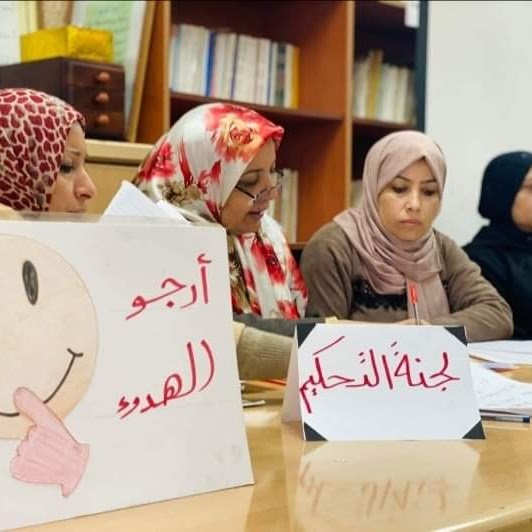 أرجو
الهدوء
لجنةُ التَّحكيم